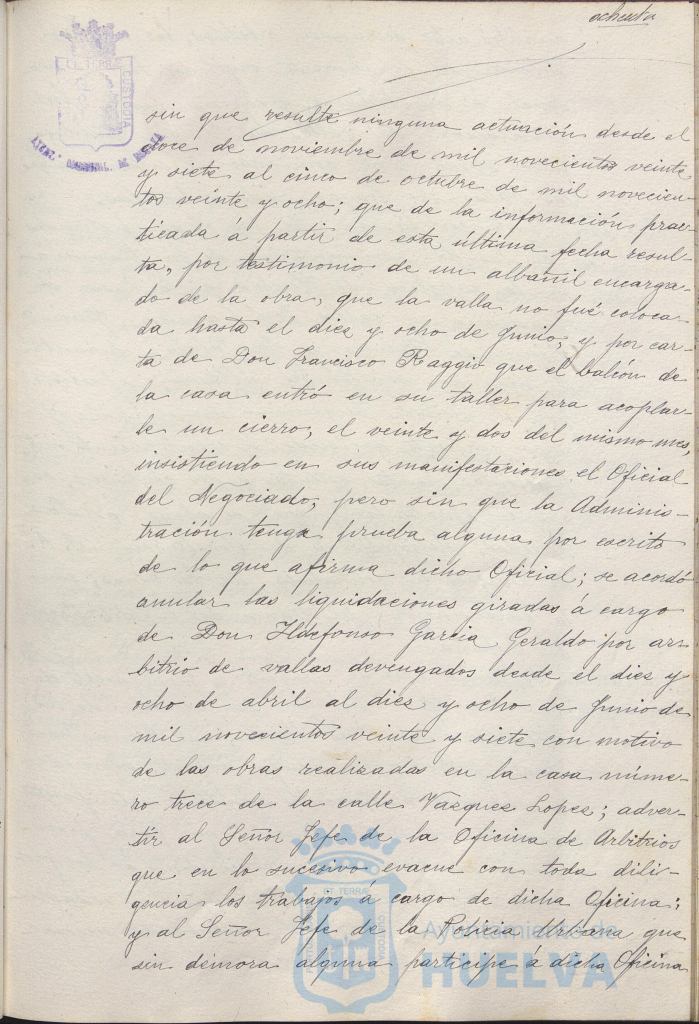 ochenta
ET TERRÆ
CUSTODIA
sin que resulte ninguna actuación desde el
doce de noviembre de mil novecientos veinte
y siete al cinco de octubre de mil novecien-
tos veinte y ocho; que de la información prac-
ticada á partir de esta última fecha resul-
ta, por testimonio de un albañil encarga-
do de la obra, que la valla no fué coloca-
da hasta el diez y ocho de Junio, y por car-
ta de Don Francisco Raggio que el balcón de
la casa entró en su taller para acoplar-
le un cierro, el veinte y dos del mismo mes,
insistiendo en sus manifestaciones el Oficial
del Negociado, pero sin que la Adminis-
tración tenga prueba alguna por escrito
de lo que afirma dicho Oficial; se acordó
anular las liquidaciones giradas á cargo
de Don Ildefonso Garcia Geraldo por ar-
bitrio de vallas devengados desde el diez y
ocho de abril al diez y ocho de Junio de
mil novecientos veinte y siete con motivo
de las obras realizadas en la casa núme-
ro trece de la calle Vazquez Lopez; adver-
tir al Señor Jefe de la Oficina de Arbitrios
que en lo sucesivo evacue con toda dili-
gencia los trabajos á cargo de dicha Oficina;
y al Señor Jefe de la Policia Urbana que
sin demora alguna participe á dicha Oficina
ET TERRÆ
CUSTODIA
Ayuntamiento de
HUELVA